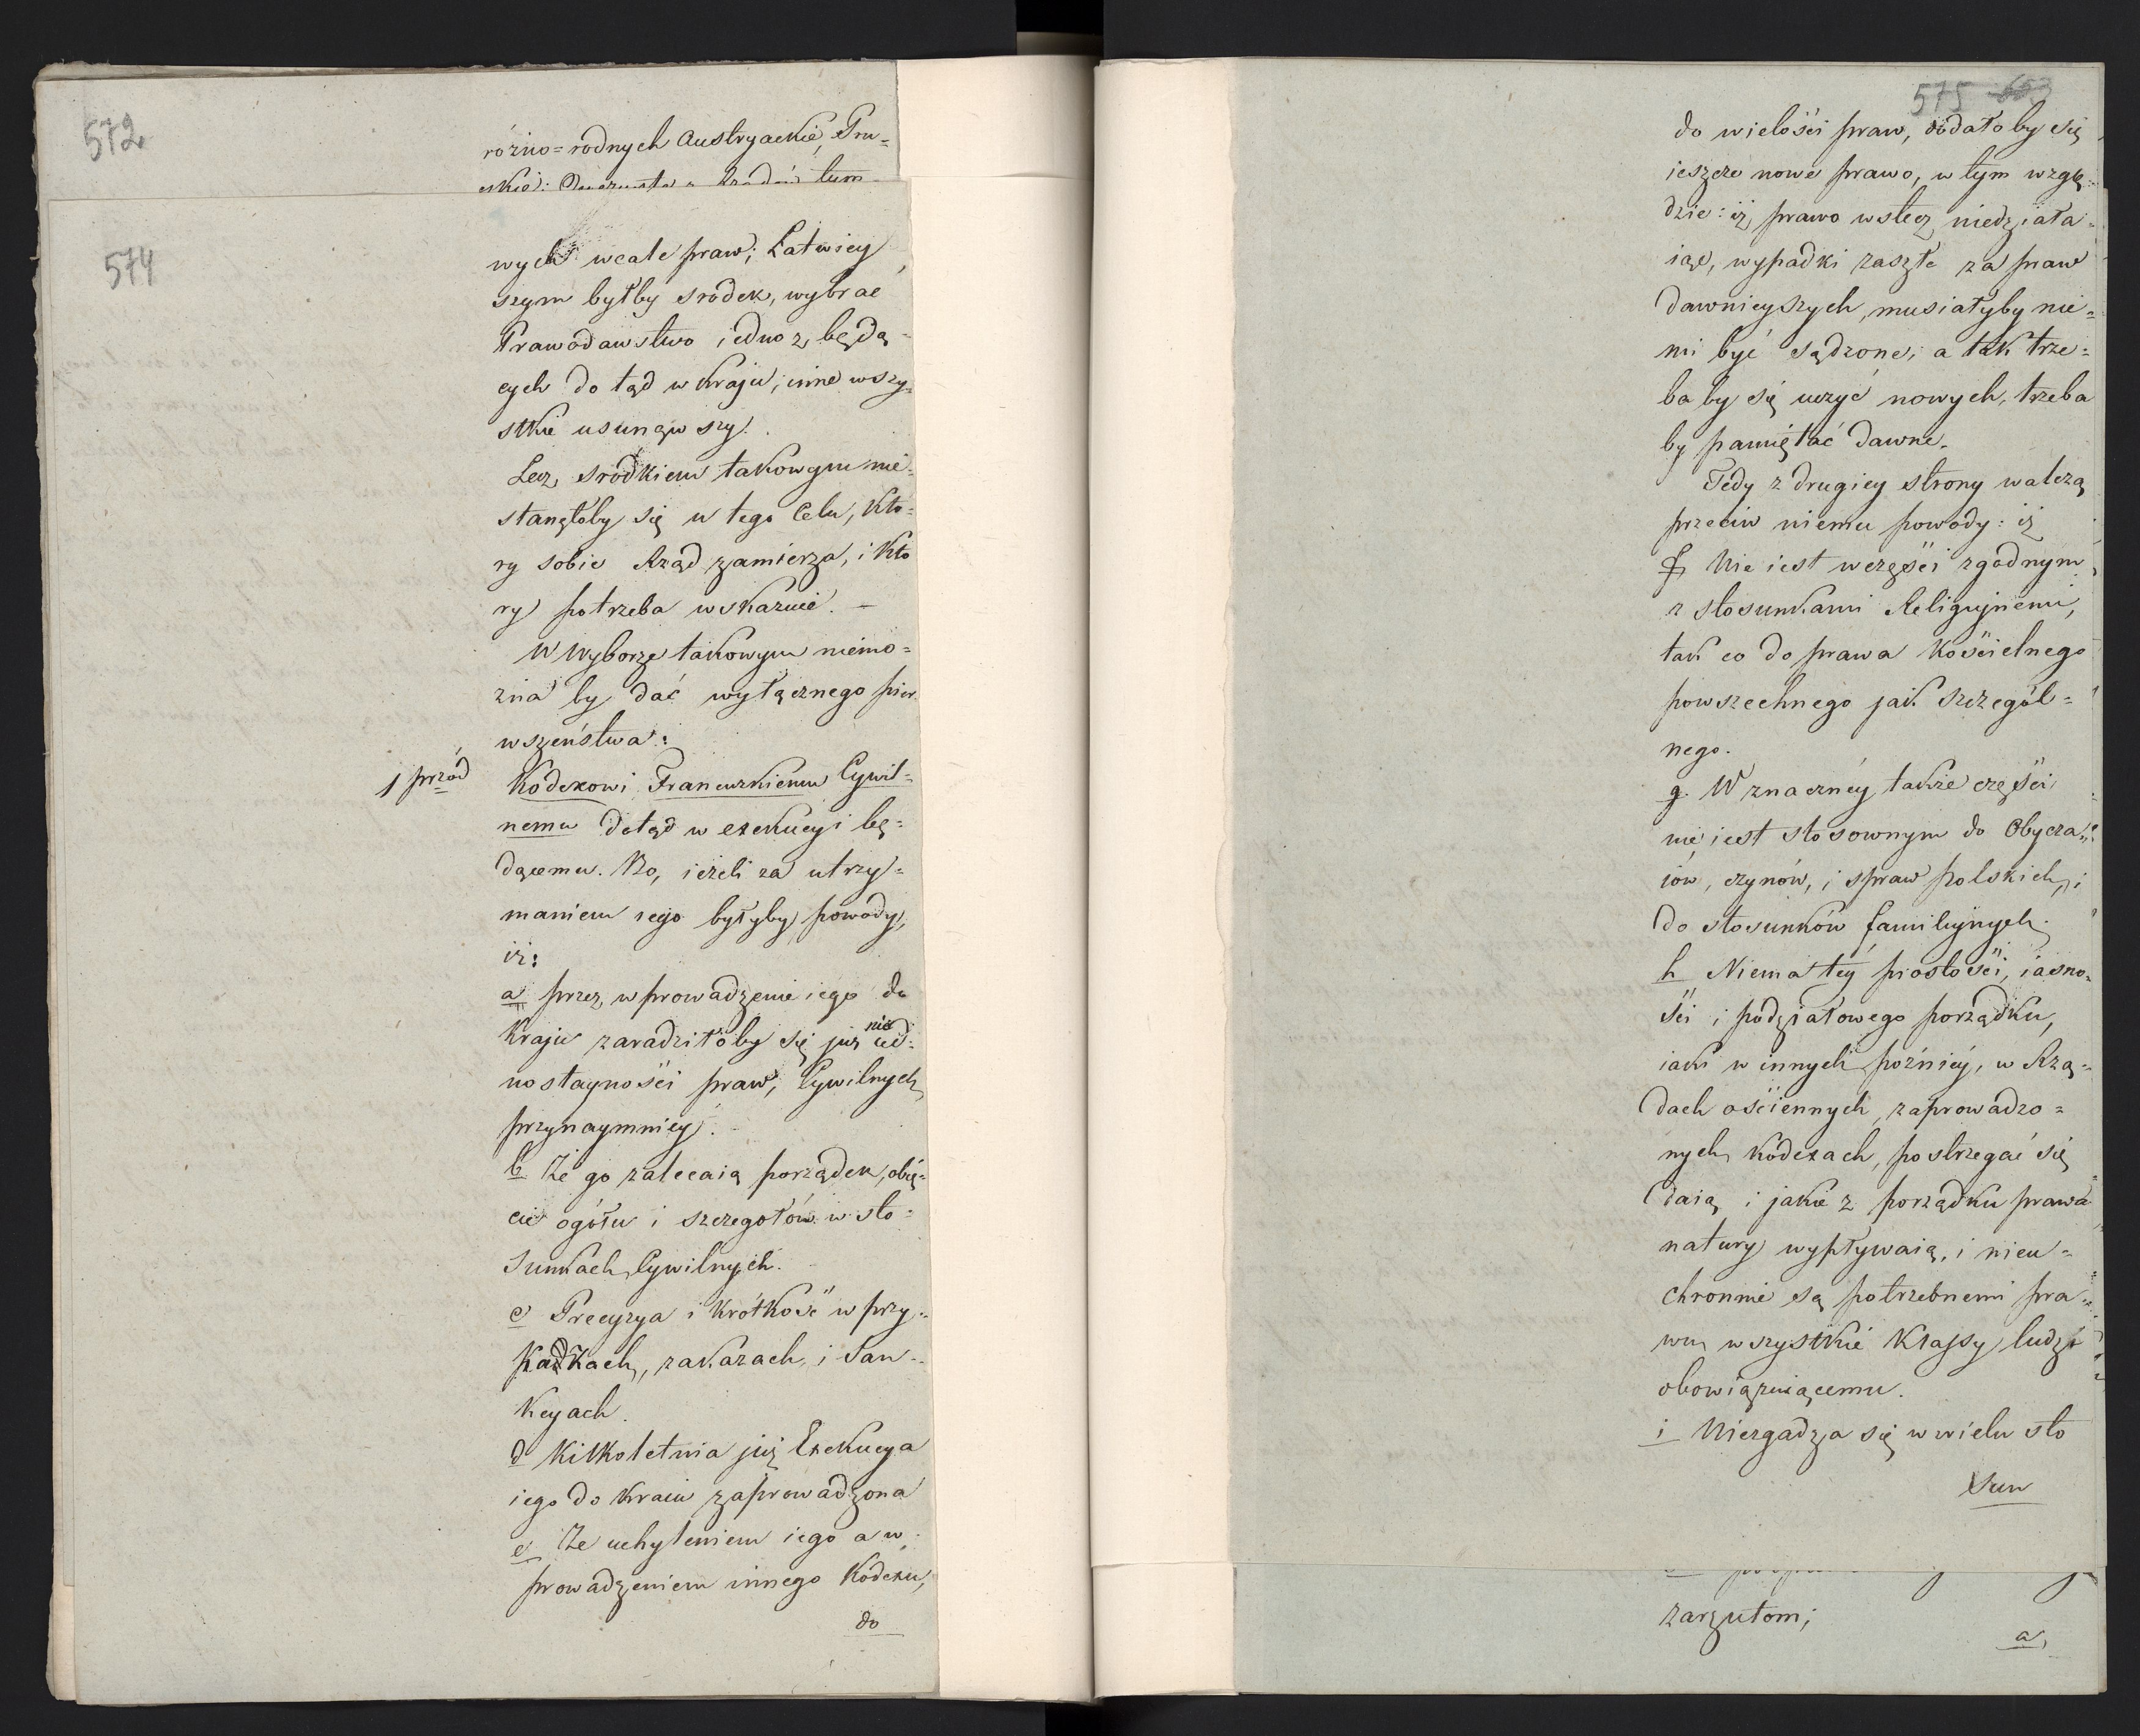 572
różno=rodnych Austryackie, Pru=
skie:
574
wych wcale praw; Łatwiey
szym byłby srodek, wybrać
Prawodawstwo iedno z będą=
cych do tąd w kraju; inne wszy=
stkie usunąwszy.
Lecz, srodkiem takowym nie=
stanęłoby się u tego Celu, któ=
ry sobie Rząd zamierza, i któ
ry potrzeba wskazuie. —
W wyborze takowym niemo=
żna by dać wyłącznego pier=
wszeństwa:
1 przód
Kodexowi Francuzkiemu Cywil=
nemu dotąd w exekucyi bę=
dącemu. Bo, ieżeli za utrzy=
maniem iego byłyby powody,
iż:
a przez wprowadzenie iego do
Kraju zaradziłoby się już nie ied=
nostayności praw, Cywilnych
przynaymniey.
b Że go zalecaią porządek, obię=
cie ogółu i szczegołów w sto=
sunkach Cywilnych.
c Precyzya i krótkość w przy=
padkach, zakazach, i San=
kcyach.
d Kilkoletnia już Exekucya
iego do kraiu zaprowadzona
e Że uchyleniem iego a w=
prowadzeniem innego Kodexu,
do
575 653
do wielości praw, dodałoby się
ieszcze nowe prawo, w tym wzglę=
dzie: iż prawo wstecz niedziała=
iąc, wypadki zaszłe za praw
dawnieyszych, musiałyby nie=
mi być sądzone; a tak trze=
ba by się uczyć nowych, trzeba
by pamiętać dawne.
Tedy z drugiey strony walczą
przeciw niemu powody: iż
f Nie iest w części zgodnym
z stosunkami Religujnemi,
tak co do prawa kościelnego
powszechnego jak szczegól=
nego.
g. W znacznéy także części
nie iest stosownym do Obycza=
iów, czynów, i spraw polskich, i
do stosunków familiynych.
h Niema téy prostości, iasno=
ści i podziałowego porządku,
iaki w innych późniéy, w Rzą=
dach ościennych, zaprowadzo=
nych kodexach, postrzegać się
daią i jakie z porządku prawa
natury wypływaią, i nieu=
chronnie są potrzebnemi pra=
wu wszystkie Klassy ludzi
obowiązuiącemu.
i Niezgadza się w wielu sto
sun
zarzutom;
a,